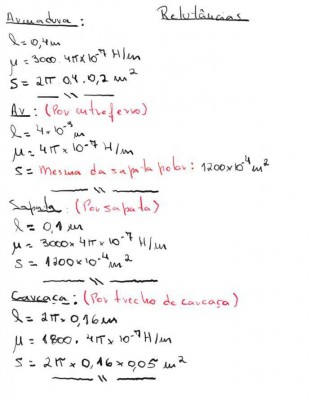 Armadura :
Relutâncias
l = 0,4 m
μ = 3000 . 4π×10⁻⁷ H/m
S = 2π 0,4 . 0,2 m²
— 11 —
Ar : (Por entreferro)
l = 4×10⁻³ m
μ = 4π × 10⁻⁷ H/m
S = Mesma da sapata polar : 1200×10⁻⁴ m²
— 11 —
Sapata : (Por sapata)
l = 0,1 m
μ = 3000 × 4π × 10⁻⁷ H/m
S = 1200×10⁻⁴ m²
— 11 —
Carcaça : (Por trecho de carcaça)
l = 2π × 0,16 m
μ = 1800 . 4π × 10⁻⁷ H/m
S = 2π × 0,16 × 0,05 m²
— 11 —